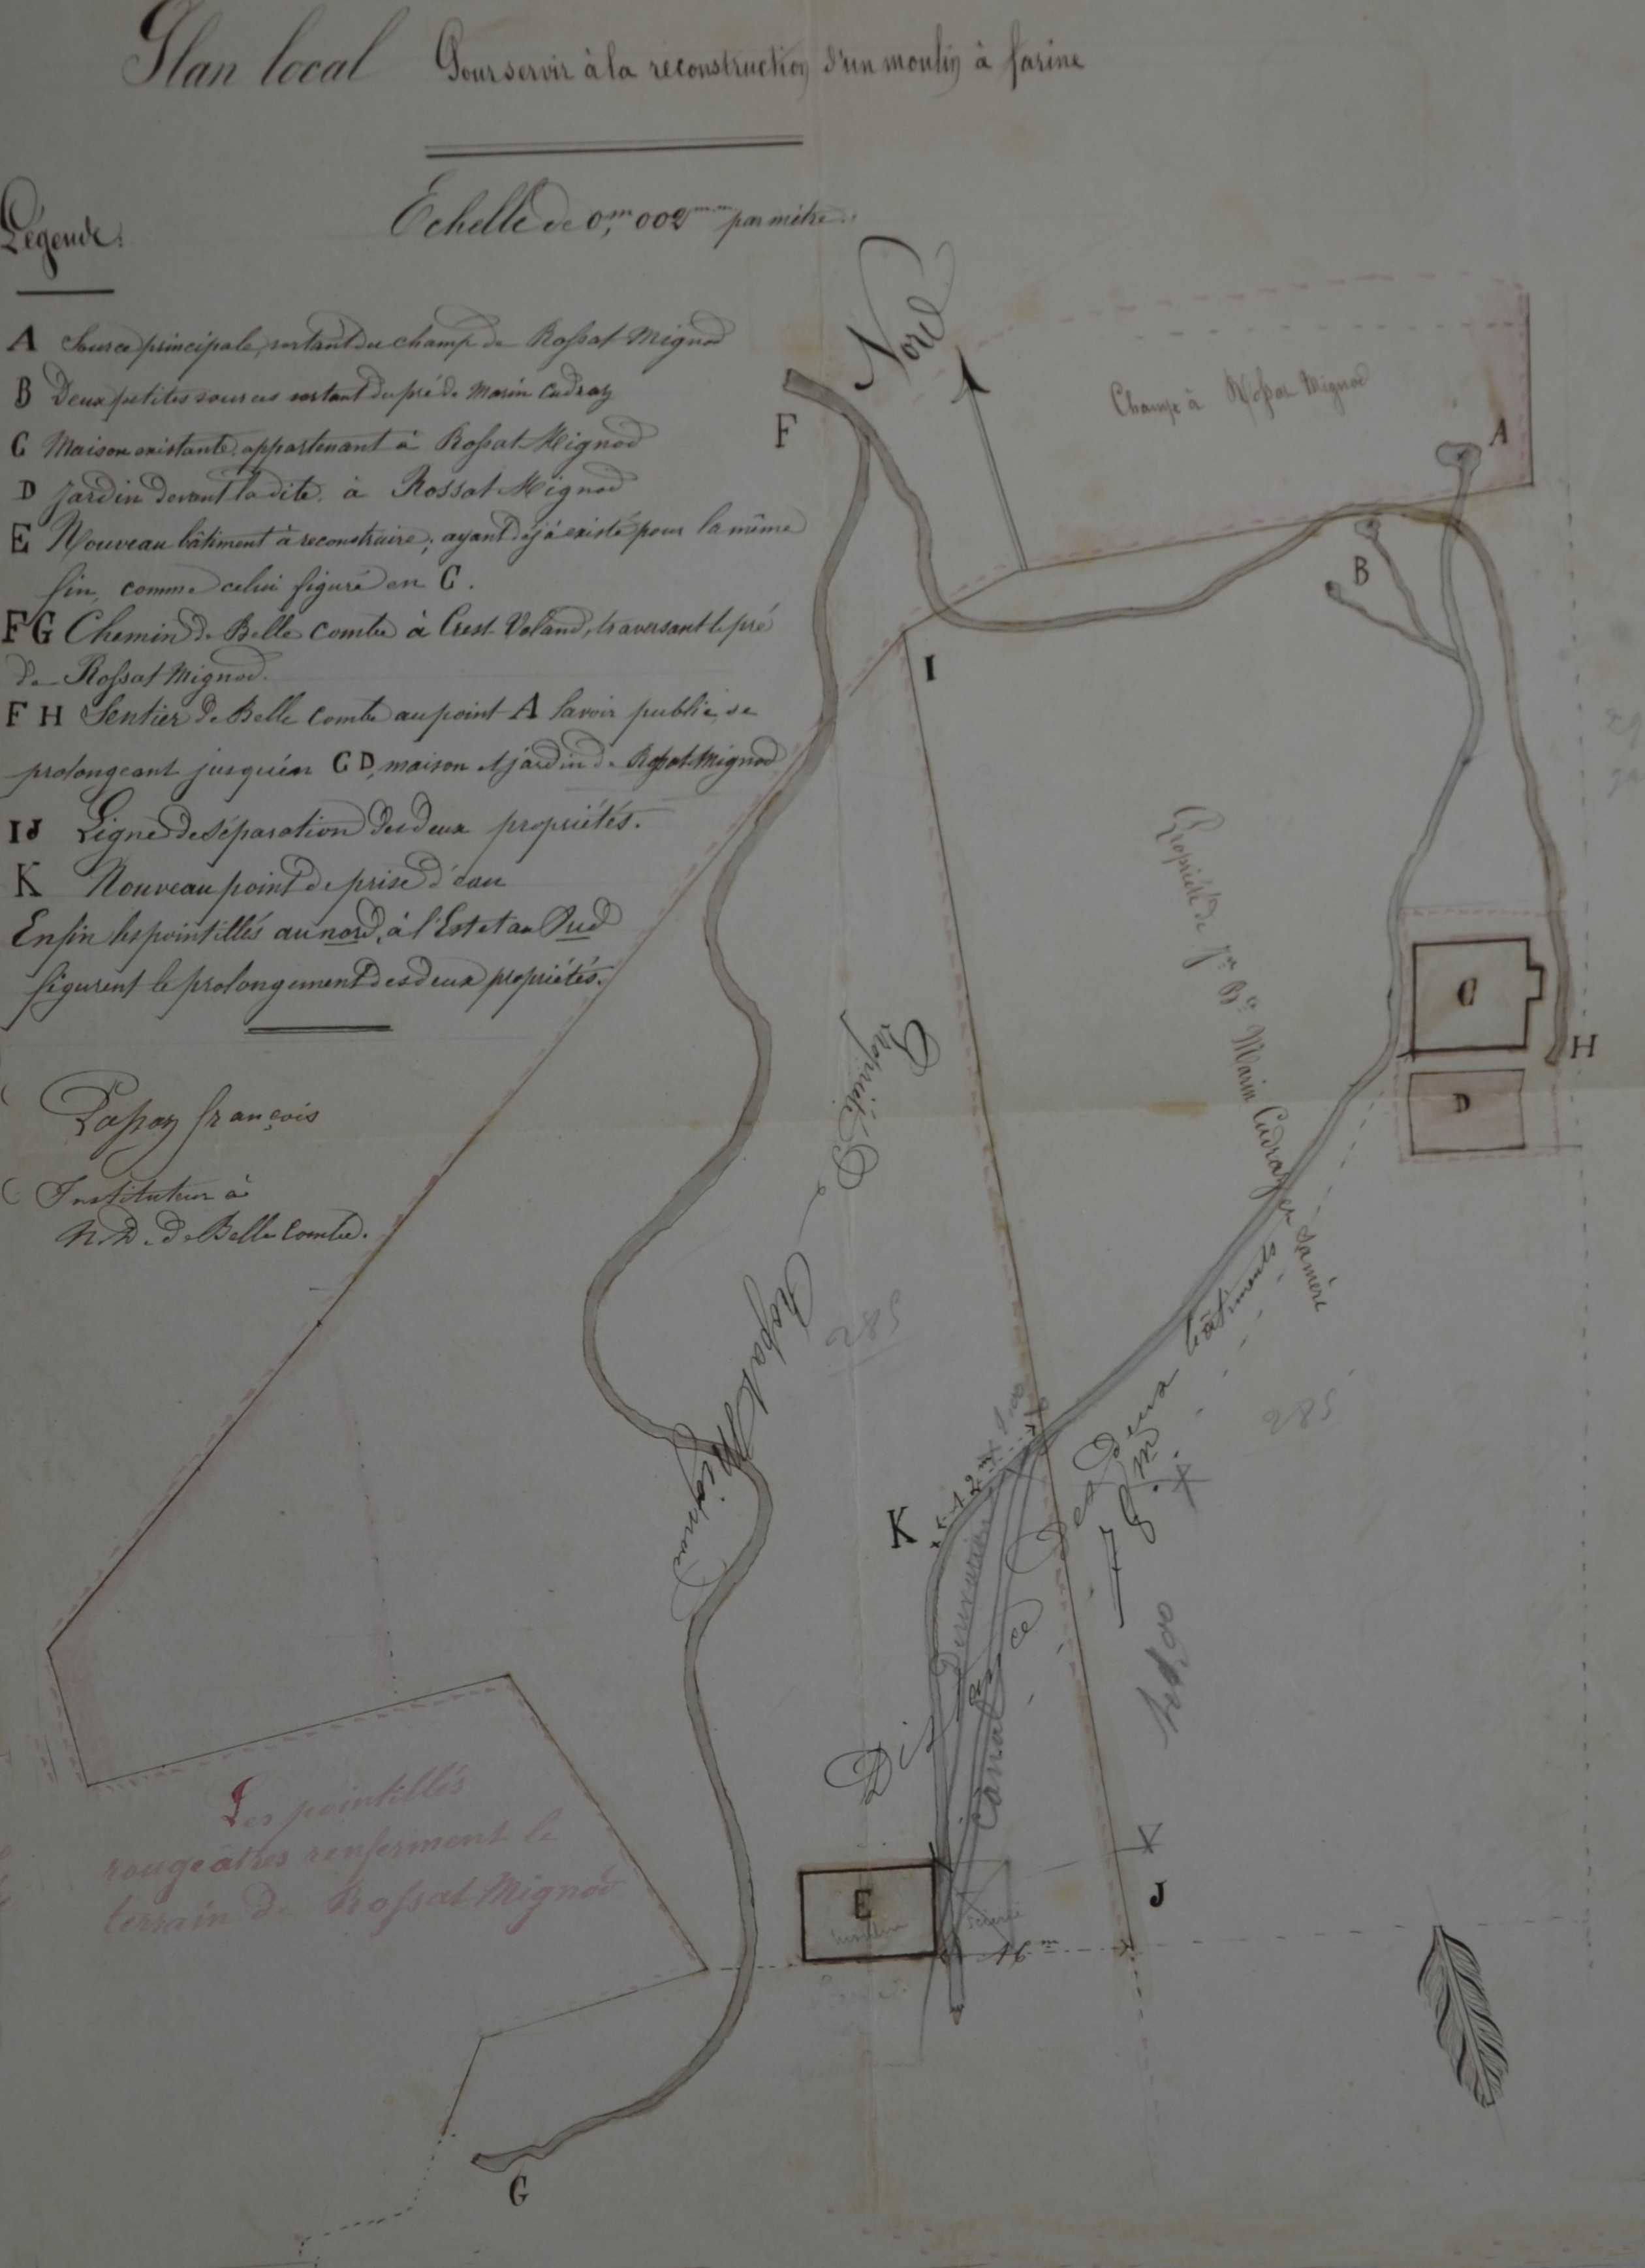 Plan local Pour servir à la reconstruction d'un moulin à farine
Echelle de 0,m 002mm par mètre.
Légende.
A Source principale, sortant du champ de Rossat-Mignod
B Deux petites sources sortant du pré de Marin Cudraz
C Maison existante, appartenant à Rossat-Mignod
D Jardin devant la dite, à Rossat-Mignod
E Nouveau bâtiment à reconstruire; ayant déjà existé pour la même
fin, comme celui figuré en C.
FG Chemin de Belle combe à Crest-Voland, traversant le pré
de Rossat Mignod.
F H Sentier de Belle combe au point A savoir public, se
prolongeant jusqu'en C D, maison et jardin de Rossat Mignod
IJ Ligne de séparation des deux propriétés.
K Nouveau point de prise d'eau
Enfin les pointillés au nord, à l'Est et au Sud
figurent le prolongement des deux propriétés.
Instituteur à
N. D. de Belle Combe.
françois
Nord
Champ à Rossat Mignod
A
F
B
I
Propriété de Jn Bte Marin Cudraz et sa mère
C
H
D
Propriété de Rossat Mignod
285
285
K
12m
Distance des deux bâtiments
78m
Canal
Dérivation
Les pointillés
rougeâtres renferment le
terrain de Rossat-Mignod
E
moulin
scierie
16m
J
G